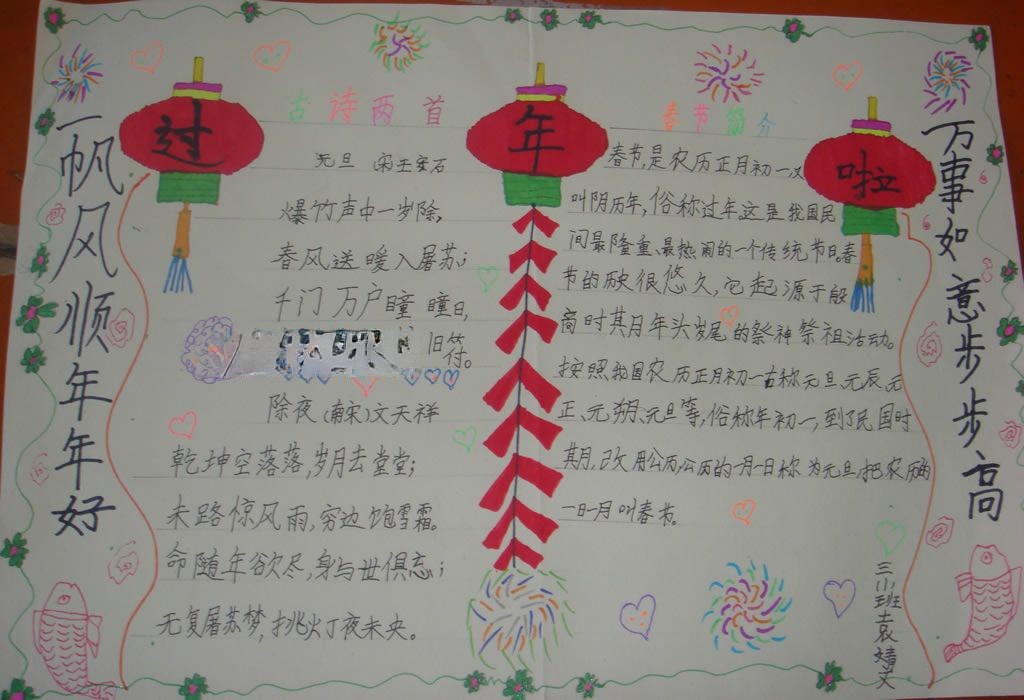 过年啦
一帆风顺年年好
万事如意步步高
古诗两首
元旦 宋王安石
爆竹声中一岁除,
春风送暖入屠苏;
千门万户瞳瞳日,
旧符。
除夜(南宋)文天祥
乾坤空落落,岁月去堂堂;
末路惊风雨,穷边饱雪霜。
命随年欲尽,身与世俱忘;
无复屠苏梦,挑灯夜未央。
春节简介
春节,是农历正月初一,又
叫阴历年,俗称过年这是我国民
间最隆重、最热闹的一个传统节日。春
节的历史很悠久,它起源于殷
商时其月年头岁尾的祭神祭祖活动。
按照我国农历正月初一古称元旦、元辰、元
正、元朔、元旦等,俗称年初一,到了民国时
其月,改用公历,公历的一月一日称为元旦,把农历的
一日一月叫春节。
三小班袁婧